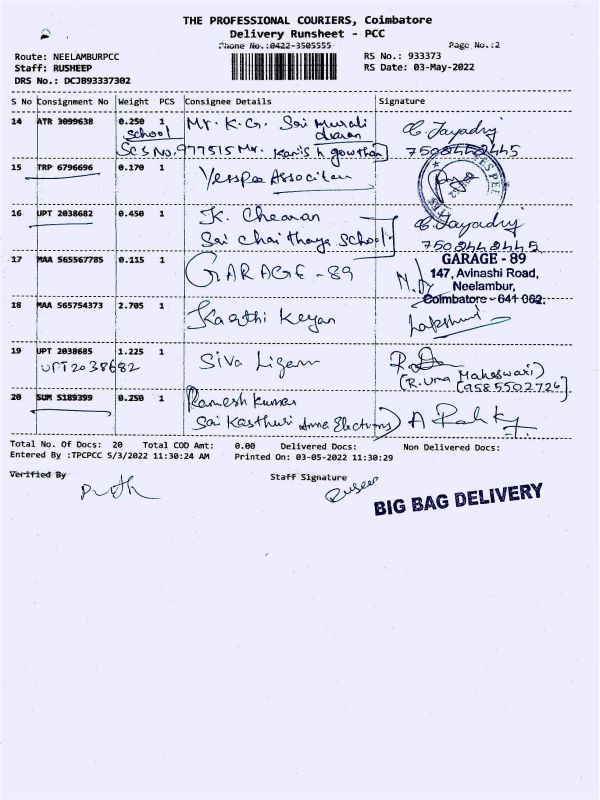 THE PROFESSIONAL COURIERS, Coimbatore
Delivery Runsheet - PCC
Phone No.:0422-3505555
Page No.:2
Route: NEELAMBURPCC
RS No.: 933373
Staff: RUSHEEP
RS Date: 03-May-2022
DRS No.: DCJB93337302
S No Consignment No Weight PCS Consignee Details Signature
14 ATR 3099638 0.250 1 Mr. K.G. Sri Murali
School
SCS No. 977515 Mr.
7508442445
15 TRP 6796696 0.170 1
16 UPT 2038682 0.450 1 K. Chearan
Sai Chaithanya School
7508442445
17 MAA 565567785 0.115 1 GARAGE - 89
GARAGE - 89
147, Avinashi Road,
Neelambur,
Coimbatore - 641 062.
18 MAA 565754373 2.705 1 Kaathi Keyan
Lakshmi
19 UPT 2038685 1.225 1 Siva Ligam
UPT2038682
(R. Uma Maheswari)
[9585502726]
20 SUM 5189399 0.250 1 Ramesh Kumar
Sai Kasthuri
Total No. Of Docs: 20 Total COD Amt: 0.00 Delivered Docs: Non Delivered Docs:
Entered By :TPCPCC 5/3/2022 11:30:24 AM Printed On: 03-05-2022 11:30:29
Verified By
Staff Signature
BIG BAG DELIVERY